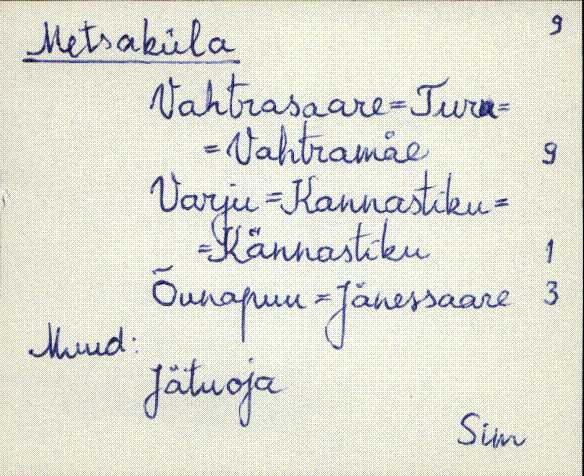 9
Metsaküla
Vahtrasaare = Turu =
= Vahtramäe 9
Varju = Kannastiku =
= Kännastiku 1
Õunapuu = Jänessaare 3
Muud:
Jätuoja
Sim